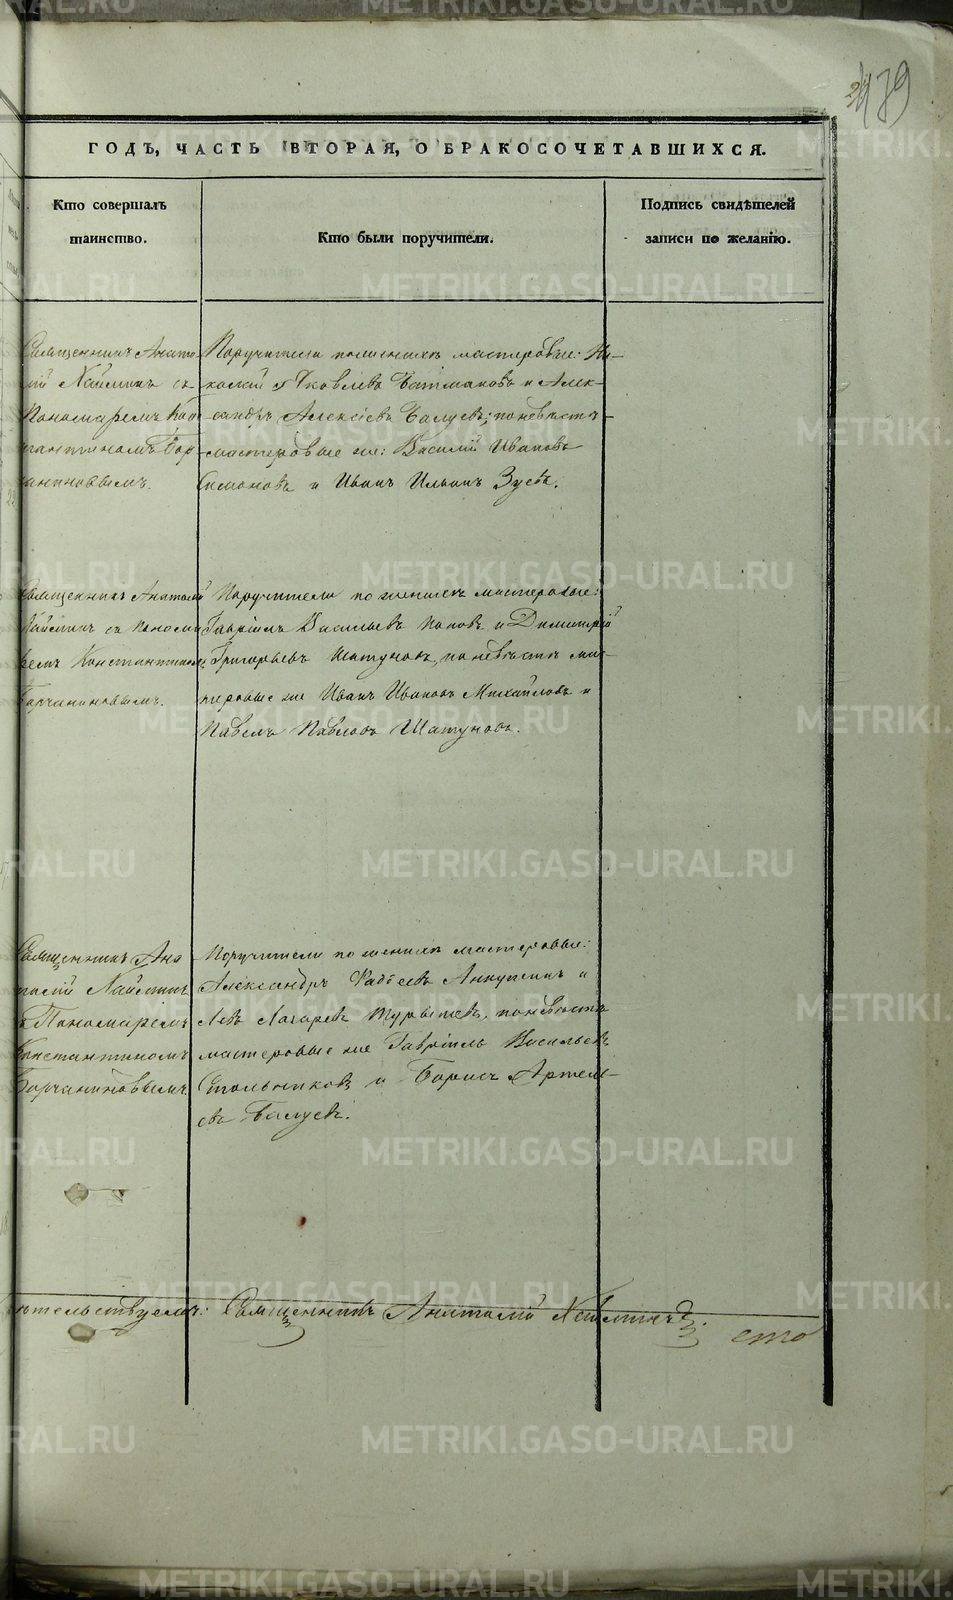 479
ГОДЪ, ЧАСТЬ ВТОРАЯ, О БРАКОСОЧЕТАВШИХСЯ.
Кто совершалъ
таинство.
Кто были поручители.
Подпись свидѣтелей
записи по желанію.
Священникъ Анато
лій Хайминъ съ
Пономаремъ Кон
стантиномъ Бор
чаниновымъ.
Поручители по женихѣ мастеровые: Ни-
колай Яковлевъ Батмановъ и Алек-
сандръ Алексѣевъ Балуевъ; по невѣстѣ
мастеровые же: Василій Ивановъ
Симоновъ и Иванъ Ильинъ Зуевъ.
Священникъ Анатолій
Хайминъ съ Понома
ремъ Константиномъ
Борчаниновымъ.
Поручители по женихѣ мастеровые:
Гавріилъ Васильевъ Поповъ и Димитрій
Григорьевъ Шатуновъ, по невѣстѣ мас-
теровые же Иванъ Ивановъ Михайловъ и
Павелъ Павловъ Шатуновъ.
Священникъ Ана
толій Хайминъ
съ Пономаремъ
Константиномъ
Борчаниновымъ
Поручители по женихѣ мастеровые:
Александръ Фадѣевъ и
Левъ Лазаревъ по невѣстѣ
мастеровые же Гавріилъ Васильевъ
Стольниковъ и Борисъ Артемь-
евъ Балуевъ.
Священникъ Анатолій Хайминъ.
METRIKI.GASO-URAL.RU